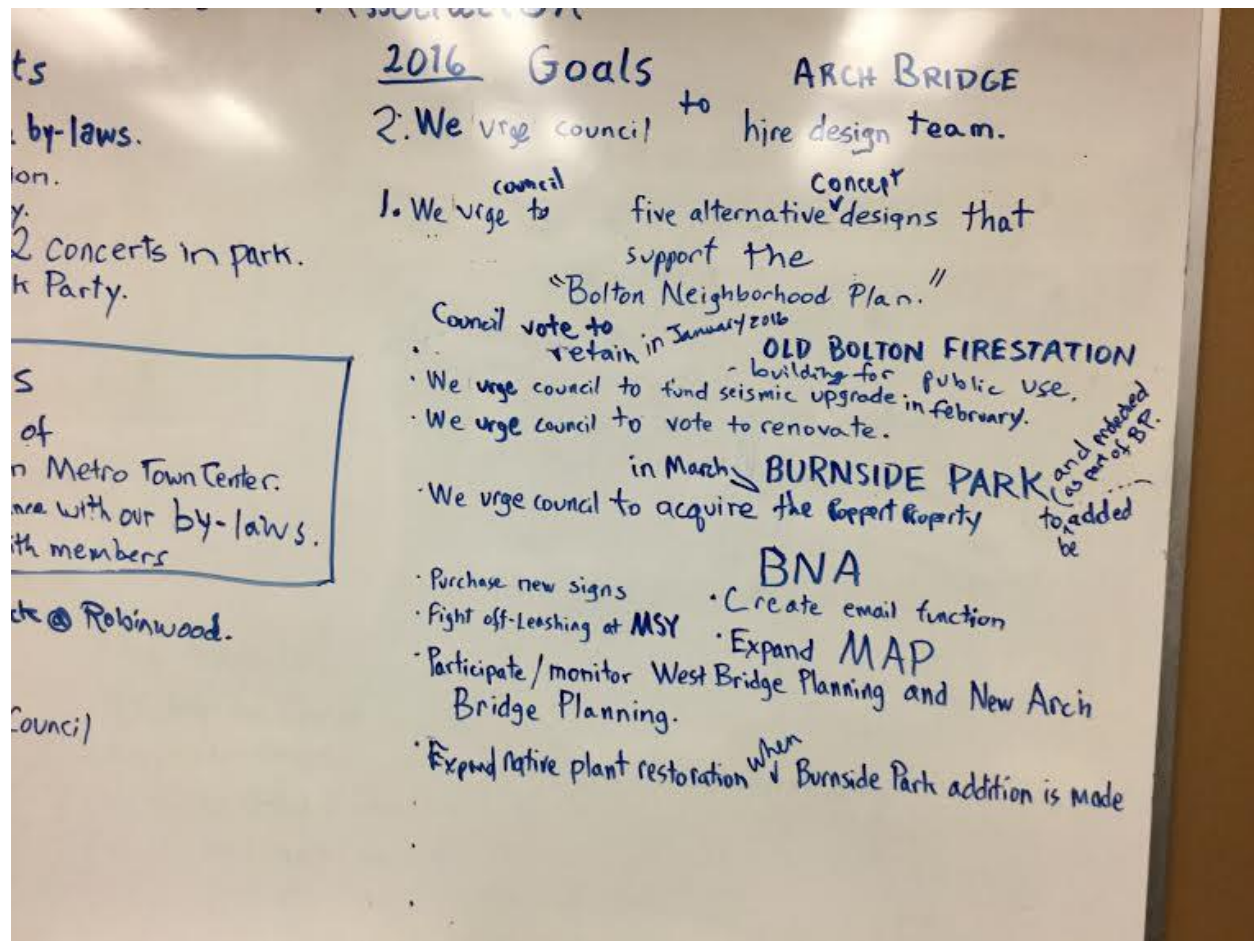 Association
ts
. by-laws.
ion.
y.
2 concerts in park.
k Party.
s
of
n Metro Town Center.
nce with our by-laws.
ith members
@ Robinwood.
Council
2016 Goals
ARCH BRIDGE
2. We urge council to hire design team.
1. We urge council to five alternative concept designs that
support the
"Bolton Neighborhood Plan."
Council vote to
retain in January 2016
OLD BOLTON FIRESTATION
- building for public use.
· We urge council to fund seismic upgrade in february.
· We urge council to vote to renovate.
in March
BURNSIDE PARK
· We urge council to acquire the Property
to be added
and protected
(as part of BP.
BNA
· Purchase new signs
· Create email function
· Fight off-Leashing at MSY
· Expand MAP
· Participate/monitor West Bridge Planning and New Arch
Bridge Planning.
· Expand native plant restoration when Burnside Park addition is made